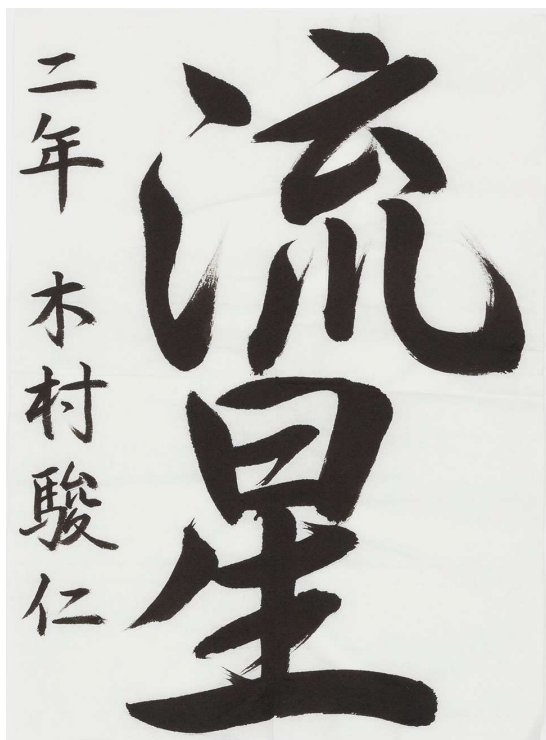 流星
二年 木村駿仁